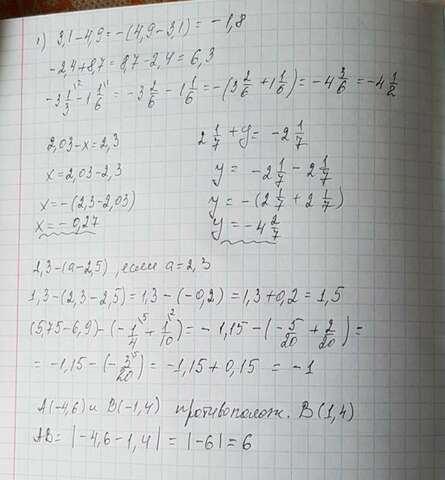 1) 3,1-4,9=-(4,9-3,1)=-1,8
-2,4+8,7=8,7-2,4=6,3
-3 1/3 \2 -1 1/6 \1 = -3 2/6 -1 1/6 = -(3 2/6 +1 1/6) = -4 3/6 = -4 1/2
2,03-x=2,3
x=2,03-2,3
x=-(2,3-2,03)
x=-0,27
2 1/7 + y = -2 1/7
y = -2 1/7 - 2 1/7
y = -(2 1/7 + 2 1/7)
y = -4 2/7
1,3-(a-2,5), если a=2,3
1,3-(2,3-2,5)=1,3-(-0,2)=1,3+0,2=1,5
(5,75-6,9)-(-1/4 \5 + 1/10 \2)=-1,15-(-5/20 + 2/20)=
=-1,15-(-3/20 \5)=-1,15+0,15=-1
A(-4,6) и B(-1,4) противополож. B(1,4)
AB=|-4,6-1,4|=|-6|=6